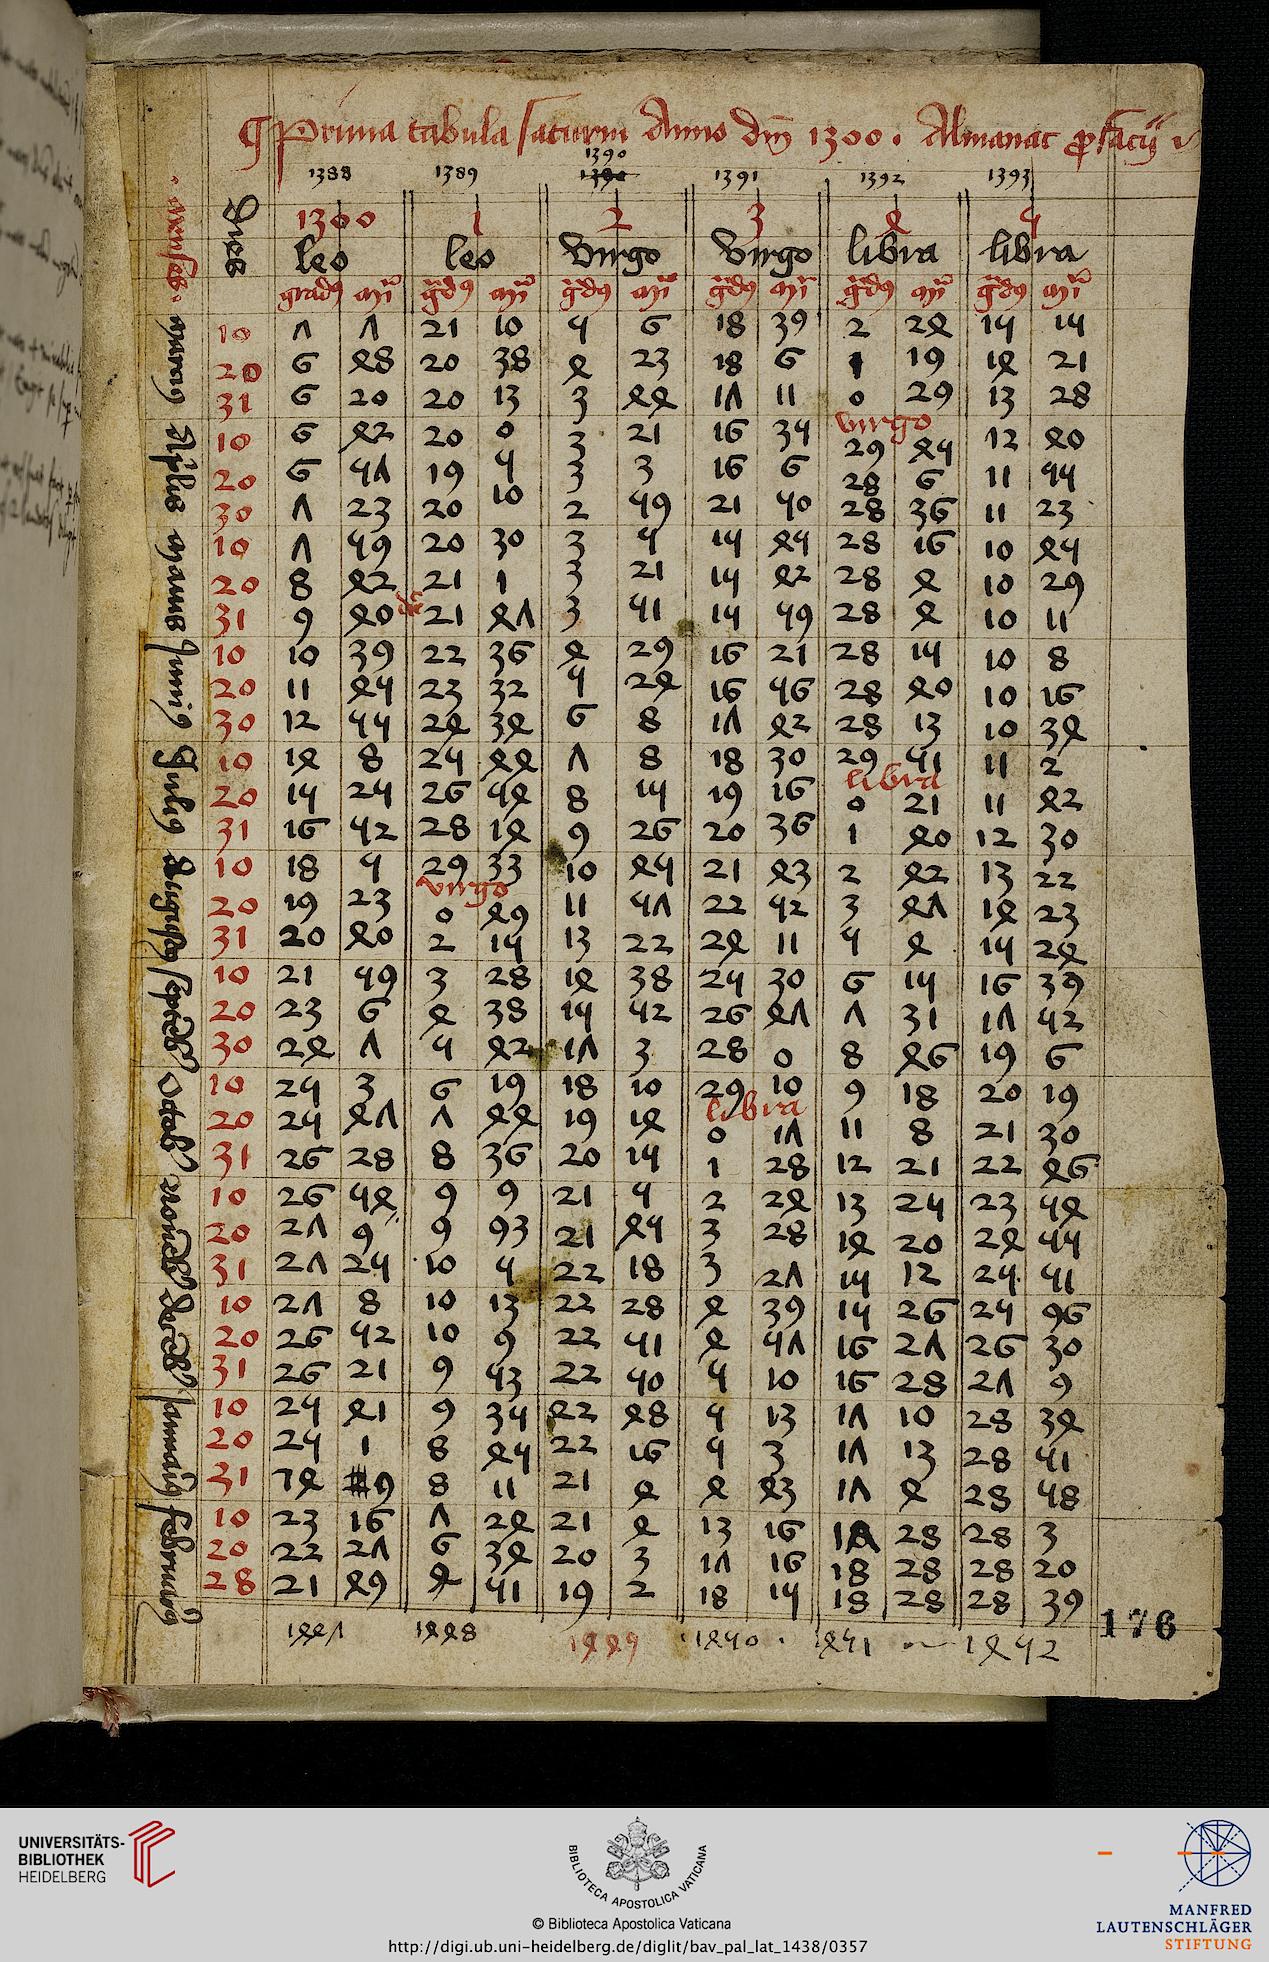 ¶ Prima tabula saturni Anno dm̄ 1300. Almanac profacij
1388 1389 1390 1391 1392 1393
menses. Dies 1300 1 2 3 4 5
leo leo virgo virgo libra libra
gradꝰ mi͞ gͣdꝰ mi͞ gͣdꝰ mi͞ gͣdꝰ mi͞ gͣdꝰ mi͞ gͣdꝰ mi͞
marciꝰ 10 7 7 21 10 5 6 18 39 2 24 15 15
20 6 48 20 38 4 23 18 6 1 19 14 21
31 6 20 20 13 3 44 17 11 0 29 13 28
virgo
Aplis 10 6 42 20 0 3 21 16 35 29 45 12 40
20 6 57 19 5 3 3 16 6 28 6 11 55
30 7 23 20 10 2 59 21 50 28 36 11 23
mayus 10 7 59 20 30 3 5 15 45 28 16 10 45
20 8 42 21 1 3 21 15 42 28 4 10 29
31 9 40 21 47 3 51 15 59 28 4 10 11
Juniꝰ 10 10 39 22 36 4 29 16 21 28 15 10 8
20 11 45 23 32 5 24 16 56 28 40 10 16
30 12 55 24 34 6 8 17 42 28 13 10 34
Juliꝰ 10 14 8 25 44 7 8 18 30 29 51 11 2
libra
20 15 25 26 54 8 15 19 16 0 21 11 42
31 16 52 28 14 9 26 20 36 1 40 12 30
Augustꝰ 10 18 5 29 33 10 45 21 43 2 42 13 22
virgo
20 19 23 0 49 11 57 22 52 3 47 14 23
31 20 40 2 15 13 22 24 11 5 4 15 24
septeb̄ 10 21 59 3 28 14 38 25 30 6 15 16 39
20 23 6 4 38 15 52 26 47 7 31 17 52
30 24 7 5 42 17 3 28 0 8 46 19 6
Octob̄ 10 25 3 6 19 18 10 29 10 9 18 20 19
libra
20 25 47 7 44 19 14 0 17 11 8 21 30
31 26 28 8 36 20 15 1 28 12 21 22 46
noueb̄ 10 26 54 9 9 21 5 2 24 13 25 23 54
20 27 9 9 93 21 45 3 28 14 20 24 55
31 27 25 10 5 22 18 3 27 15 12 25 51
deceb̄ 10 27 8 10 13 22 28 4 39 15 26 25 96
20 26 52 10 9 22 51 4 57 16 27 26 30
31 26 21 9 53 22 50 5 10 16 28 27 9
Januariꝰ 10 25 41 9 35 22 48 5 13 17 10 28 34
20 25 1 8 45 22 16 5 3 17 13 28 51
31 24 9 8 11 21 4 4 43 17 4 28 58
februariꝰ 10 23 16 7 24 21 4 13 16 28 28 3
20 22 27 6 34 20 3 17 16 18 28 28 20
28 21 49 4 51 19 2 18 15 18 28 28 39
1447 1448 1449 1450 1451 1452
176
UNIVERSITÄTS-
BIBLIOTHEK
HEIDELBERG
BIBLIOTECA APOSTOLICA VATICANA
© Biblioteca Apostolica Vaticana
http://digi.ub.uni-heidelberg.de/diglit/bav_pal_lat_1438/0357
MANFRED
LAUTENSCHLÄGER
STIFTUNG